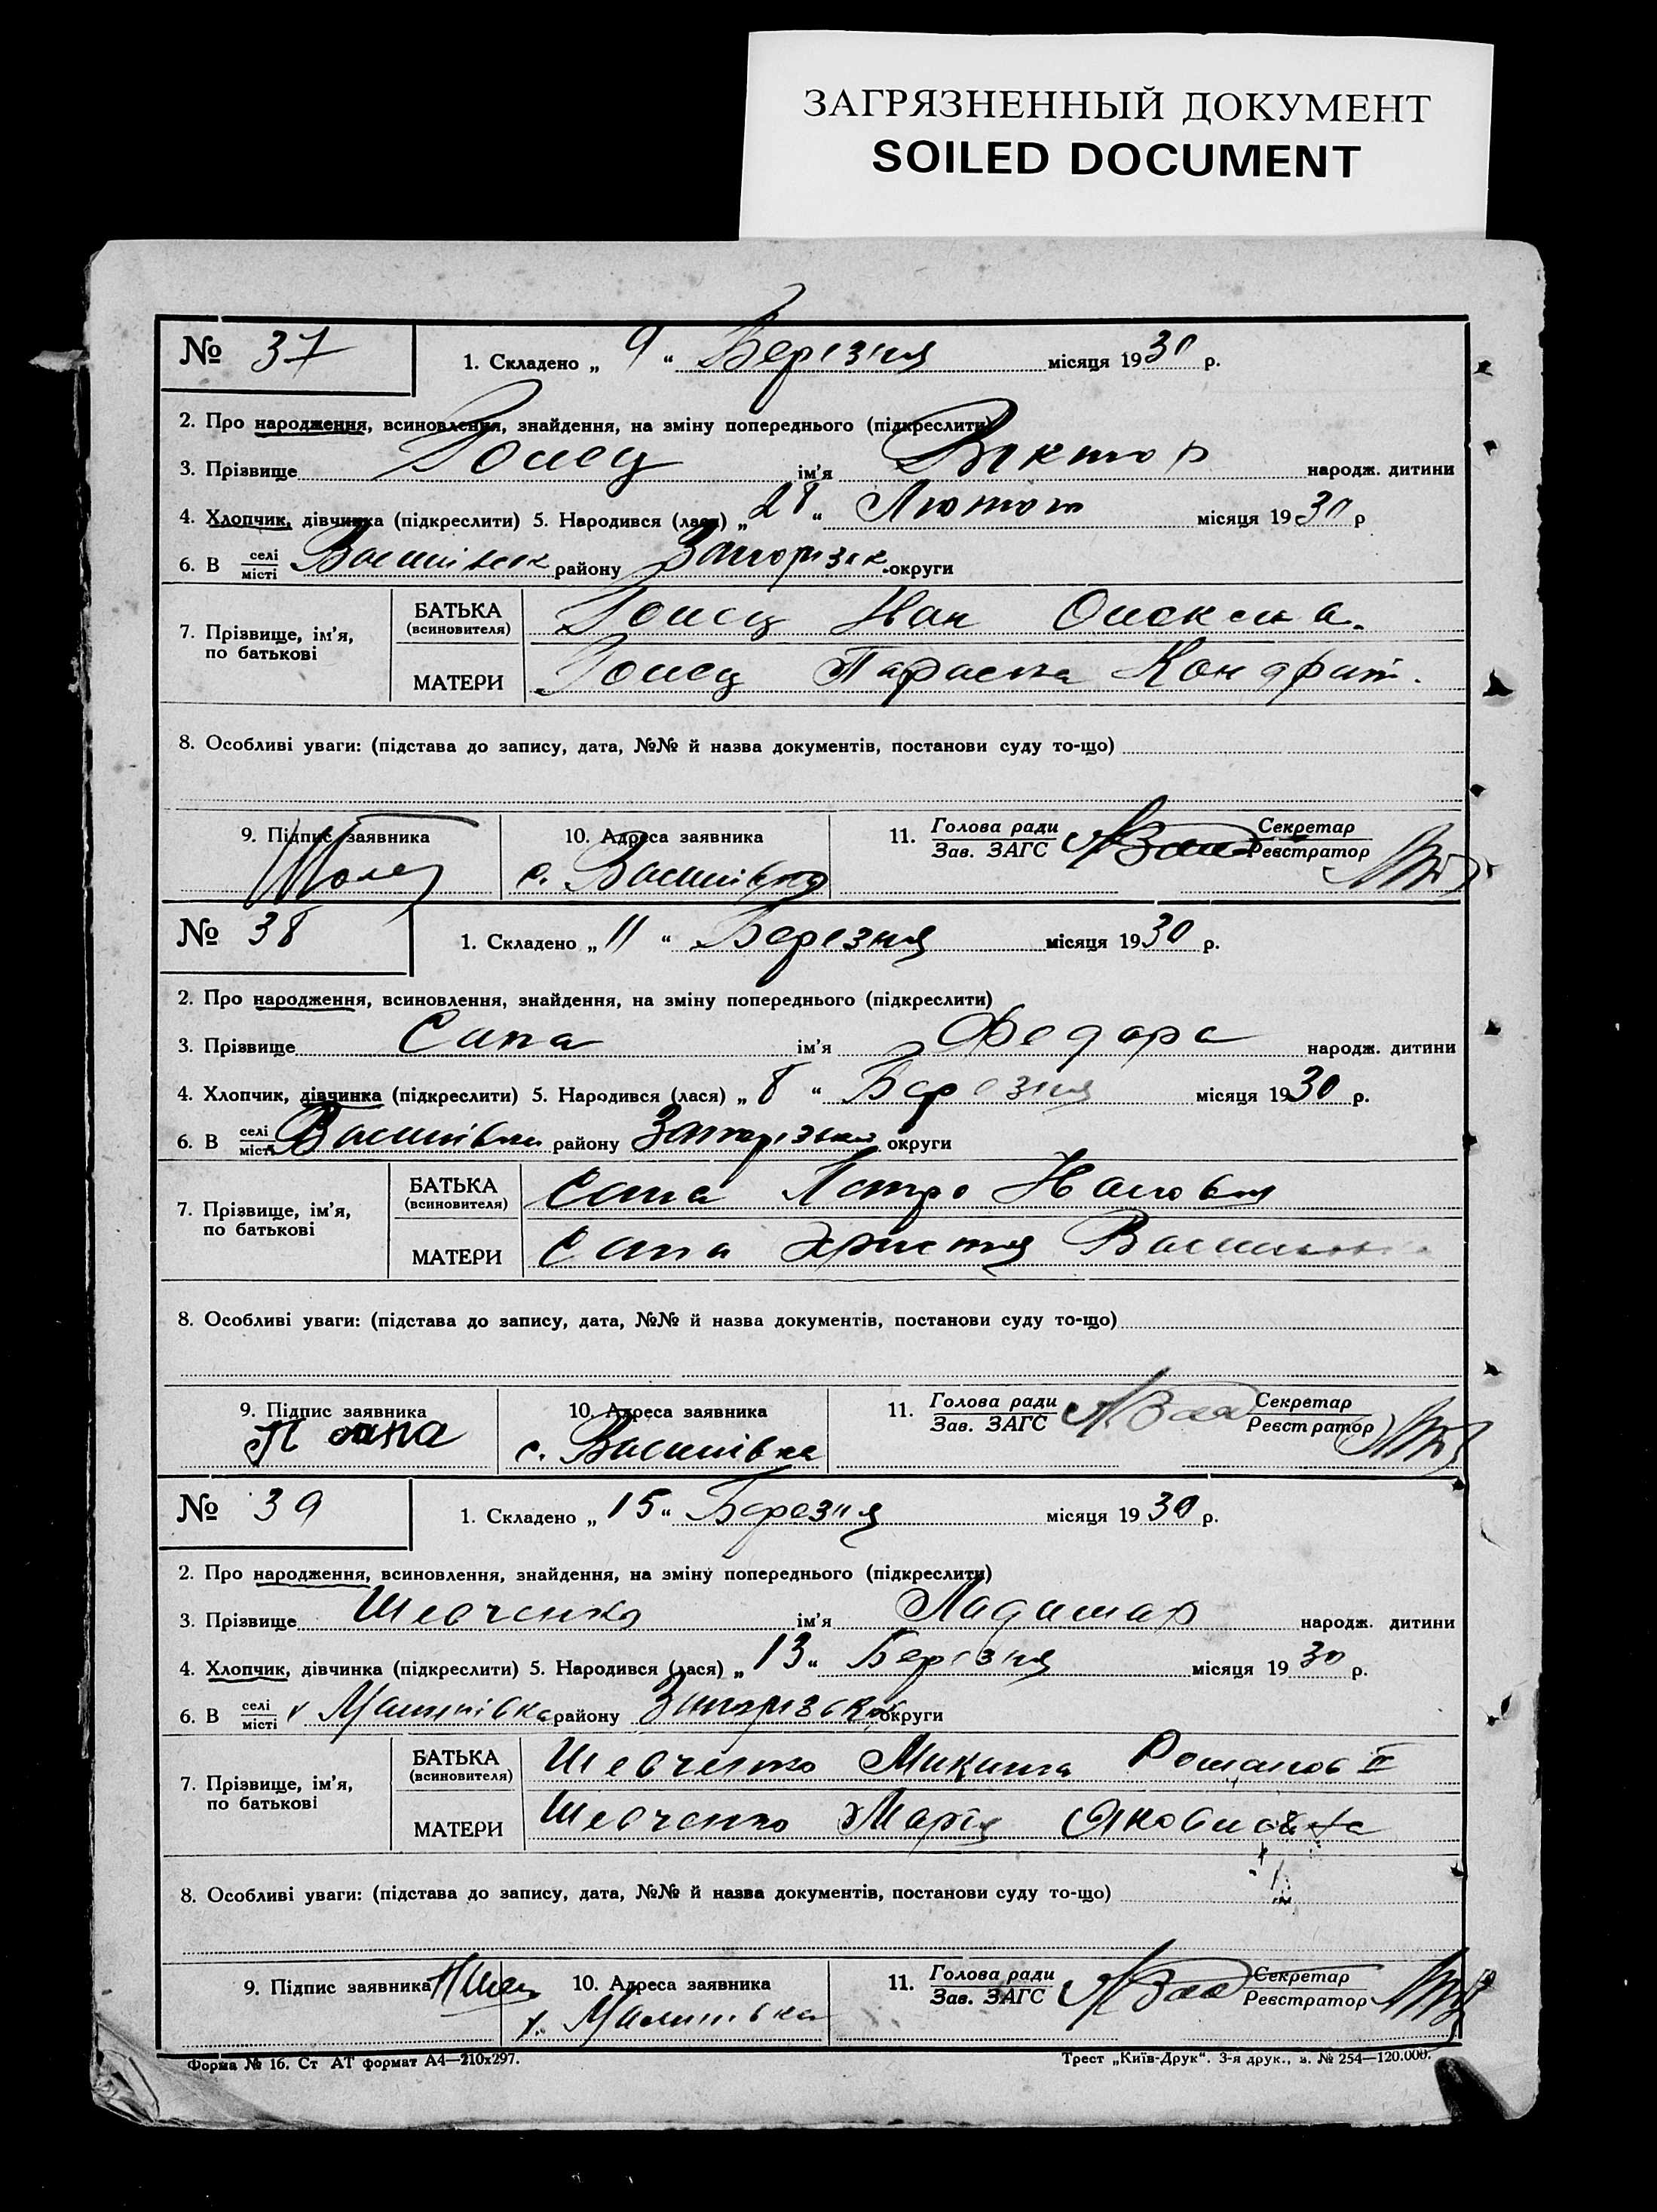 ЗАГРЯЗНЕННЫЙ ДОКУМЕНТ
SOILED DOCUMENT
№ 37 1. Складено „ 9 “ Березня місяця 1930 р.
2. Про народження, всиновлення, знайдення, на зміну попереднього (підкреслити)
3. Прізвище ім'я Виктор народж. дитини
4. Хлопчик, дівчинка (підкреслити) 5. Народився (лася) „ 28 “ Лютого місяця 1930 р
6. В селі/місті району округи
7. Прізвище, ім'я, по батькові
БАТЬКА (всиновителя) Іван
МАТЕРИ Параска Кондрат.
8. Особливі уваги: (підстава до запису, дата, №№ й назва документів, постанови суду то-що)
9. Підпис заявника 10. Адреса заявника 11. Голова ради/Зав. ЗАГС Секретар/Реєстратор
с. Василівка
№ 38 1. Складено „ 11 “ Березня місяця 1930 р.
2. Про народження, всиновлення, знайдення, на зміну попереднього (підкреслити)
3. Прізвище Сапа ім'я Федора народж. дитини
4. Хлопчик, дівчинка (підкреслити) 5. Народився (лася) „ 8 “ Березня місяця 1930 р.
6. В селі/місті Василівка району округи
7. Прізвище, ім'я, по батькові
БАТЬКА (всиновителя) Сапа Петро
МАТЕРИ Сапа Христя
8. Особливі уваги: (підстава до запису, дата, №№ й назва документів, постанови суду то-що)
9. Підпис заявника 10. Адреса заявника 11. Голова ради/Зав. ЗАГС Секретар/Реєстратор
П Сапа с. Василівка
№ 39 1. Складено „ 15 “ Березня місяця 1930 р.
2. Про народження, всиновлення, знайдення, на зміну попереднього (підкреслити)
3. Прізвище Шевченко ім'я народж. дитини
4. Хлопчик, дівчинка (підкреслити) 5. Народився (лася) „ 13 “ Березня місяця 1930 р.
6. В селі/місті району округи
7. Прізвище, ім'я, по батькові
БАТЬКА (всиновителя) Шевченко Микита
МАТЕРИ Шевченко Марія Яковливна
8. Особливі уваги: (підстава до запису, дата, №№ й назва документів, постанови суду то-що)
9. Підпис заявника 10. Адреса заявника 11. Голова ради/Зав. ЗАГС Секретар/Реєстратор
Форма № 16. Ст АТ формат А4—210х297. Трест „Київ-Друк“. 3-я друк., з. № 254—120.000.